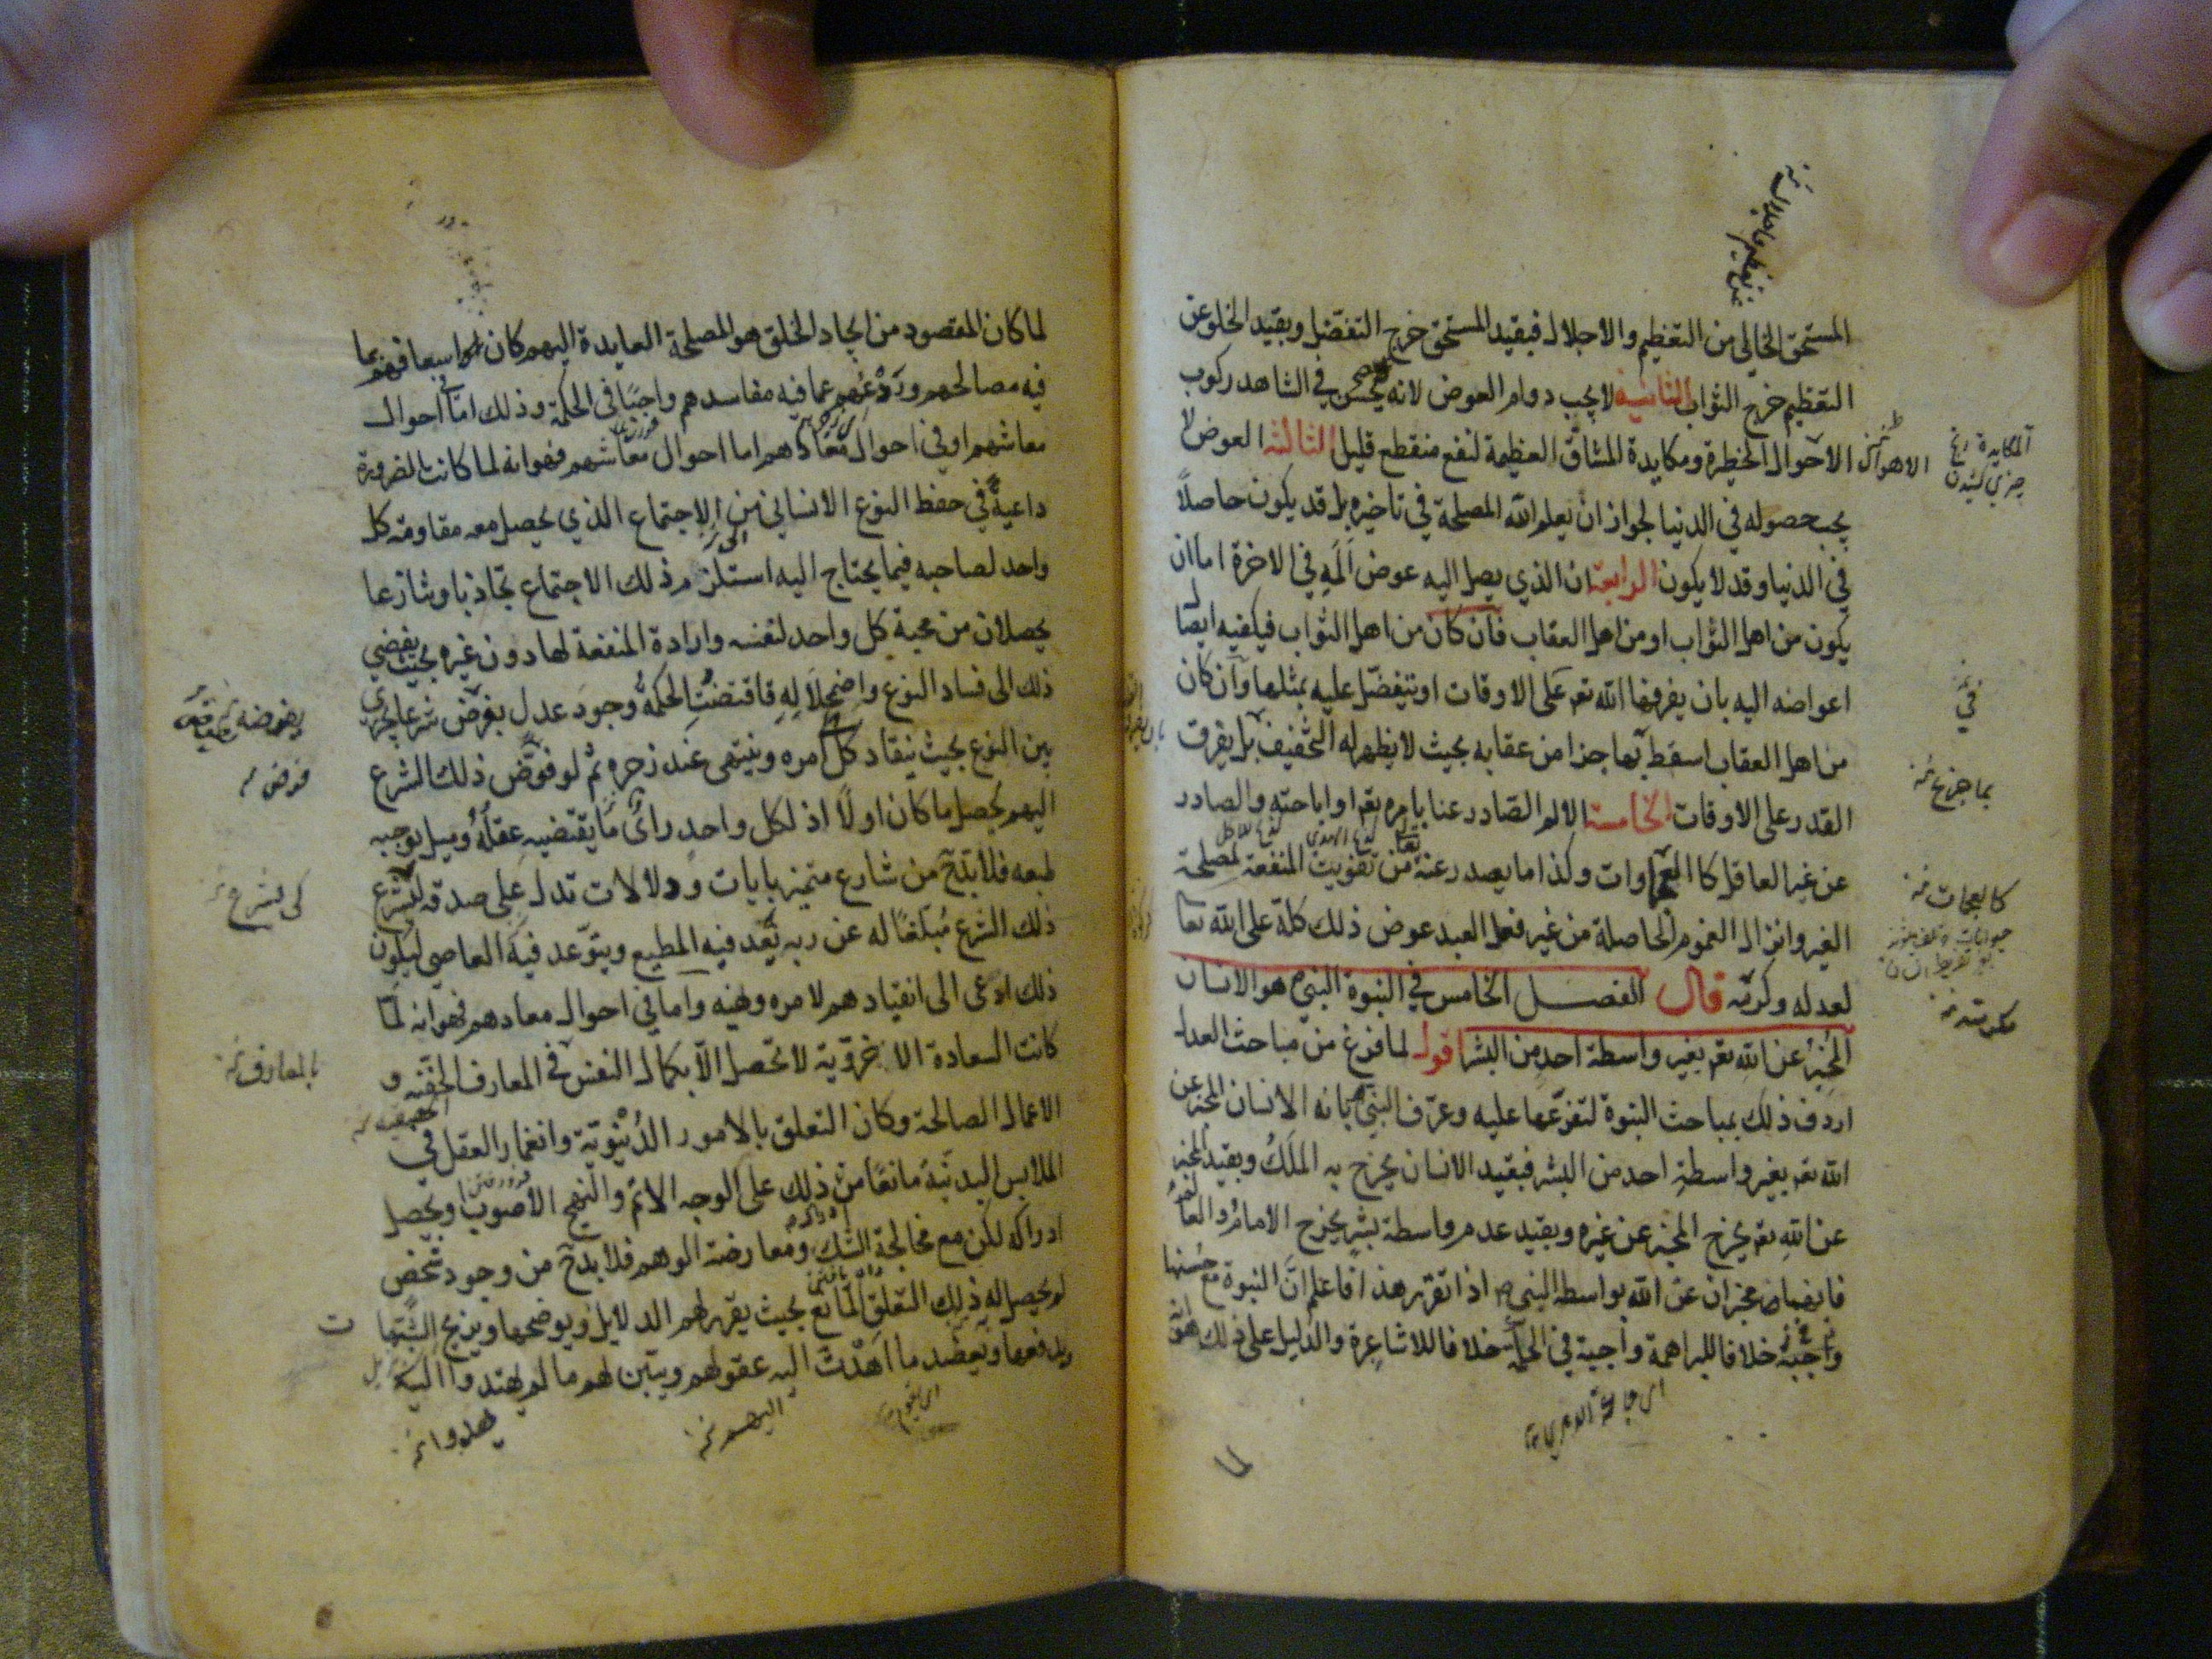 المستحق الخالي من التعظيم والاجلال فبقيد المستحق خرج التفضل وبقيد الخلو عن
التعظيم خرج الثواب الثانية لا يجب دوام العوض لانه يحسن في الشاهد ركوب
الاحوال الخطيرة ومكابدة المشاق العظيمة لنفع منقطع قليل الثالثة العوض لا
يجب حصوله في الدنيا لجواز ان يعلم الله المصلحة في تاخيره بل قد يكون حاصلاً
في الدنيا وقد لا يكون الرابعة ان الذي يصل اليه عوض المه في الاخرة اما ان
يكون من اهل الثواب او من اهل العقاب فان كان من اهل الثواب فيكفيه ايصال
اعواضه اليه بان يفرقها الله تعم على الاوقات او يتفضل عليه بمثلها وان كان
من اهل العقاب اسقط بها جزا من عقابه بحيث لا يظهر له التخفيف بل يفرق
القدر على الاوقات الخامسة الالم الصادر عنا بامره تعم او اباحته والصادر
عن غير العاقل كا العجماوات وكذا ما يصدر عنه من تفويت المنفعة لمصلحة
الغير وانزال الغموم الحاصلة من غير فعل العبد عوض ذلك كله على الله تعا
لعدله وكرمه قال الفصل الخامس في النبوة النبي هو الانسان
المخبر عن الله تعم بغير واسطة احد من البشر اقول لما فرغ من مباحث العدل
اردف ذلك بمباحث النبوة لتفرعها عليه وعرف النبي بانه الانسان المخبر عن
الله تعم بغير واسطة احد من البشر فبقيد الانسان يخرج به الملك وبقيد المخبر
عن الله تعم يخرج المخبر عن غيره وبقيد عدم واسطة بشر يخرج الامام والعالم
فانهما مخبران عن الله بواسطة النبي ص اذا تقرر هذا فاعلم ان النبوة مع حسنها
واجبة خلافا للبراهمة واجبة في الحكمة خلافا للاشاعرة والدليل على ذلك هو انه
الاهوال
المكابدة
في
كالعجمات
مكرمته
لما كان المقصود من ايجاد الخلق هو المصلحة العايدة اليهم كان اسعافهم بما
فيه مصالحهم وردعهم عما فيه مفاسدهم واجبًا في الحكمة وذلك اما في احوال
معاشهم او في احوال معادهم اما احوال معاشهم فهو انه لما كانت الضرورة
داعية في حفظ النوع الانساني من الاجتماع الذي يحصل معه مقاومة كل
واحد لصاحبه فيما يحتاج اليه استلزم ذلك الاجتماع تجاذبا وتنازعا
يحصلان من محبة كل واحد لنفسه وارادة المنفعة لها دون غيره بحيث يفضي
ذلك الى فساد النوع واضمحلاله فاقتضت الحكمة وجود عدل يفرض شرعا يجري
بين النوع بحيث ينقاد كل امره وينتهي عند زجره ثم لو فوض ذلك الشرع
اليهم لحصل ما كان اولًا اذ لكل واحد راى ما يقتضيه عقله وميل يوجبه
طبعه فلا بد ح من شارع متميز بايات ودلالات تدل على صدقه ليشرع
ذلك الشرع مبلغًا له عن ربه يعد فيه المطيع ويتوعد فيه العاصي ليكون
ذلك ادعى الى انقيادهم لامره ونهيه واما في احوال معادهم فهو انه لما
كانت السعادة الاخروية لا تحصل الا بكمال النفس في المعارف الحقة و
الاعمال الصالحة وكان التعلق بالامور الدنيوية وانغمار العقل في
الملابس البدنية مانعًا من ذلك على الوجه الاتم والنهج الاصوب ويحصل
ادراكه لكن مع مخالجة الشك ومعارضة الوهم فلا بد ح من وجود شخص
لم يحصل له ذلك التعلق المانع بحيث يقرر لهم الدلايل ويوضحها ويزيح الشبهات
ويدفعها ويعضد ما اهتدت اليه عقولهم ويبين لهم ما لم يهتدوا اليه
فوض
بالمعارف
لما